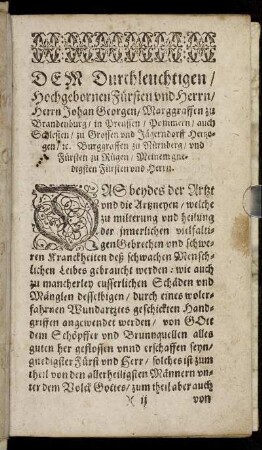 DEM Durchleuchtigen /
Hochgebornen Fürsten vnd Herrn /
Herrn Johan Georgen / Marggraffen zu
Brandenburg / in Preussen / Pommern / auch
Schlesien / zu Crossen vnd Jägerndorff Hertzo-
gen / ꝛc. Burggraffen zu Nürnberg / vnd
Fürsten zu Rügen / Meinem gne-
digsten Fürsten vnd Herrn.
DAS beydes der Artzt
vnd die Artzneyen / welche
zu milterung vnd heilung
der jnnerlichen vielfalti-
gen Gebrechen vnd schwe-
ren Kranckheiten deß schwachen Mensch-
lichen Leibes gebraucht werden: wie auch
zu mancherley eusserlichen Schäden vnd
Mänglen desselbigen / durch eines woler-
fahrnen Wundartzes geschickten Hand-
griffen angewendet werden / von GOtt
dem Schöpffer vnd Brunnquellen alles
guten her geflossen vnnd erschaffen seyn /
gnedigster Fürst vnd Herr / solches ist zum
theil von den allerheiligsten Männern vn-
ter dem Volck Gottes / zum theil aber auch
)( ij von